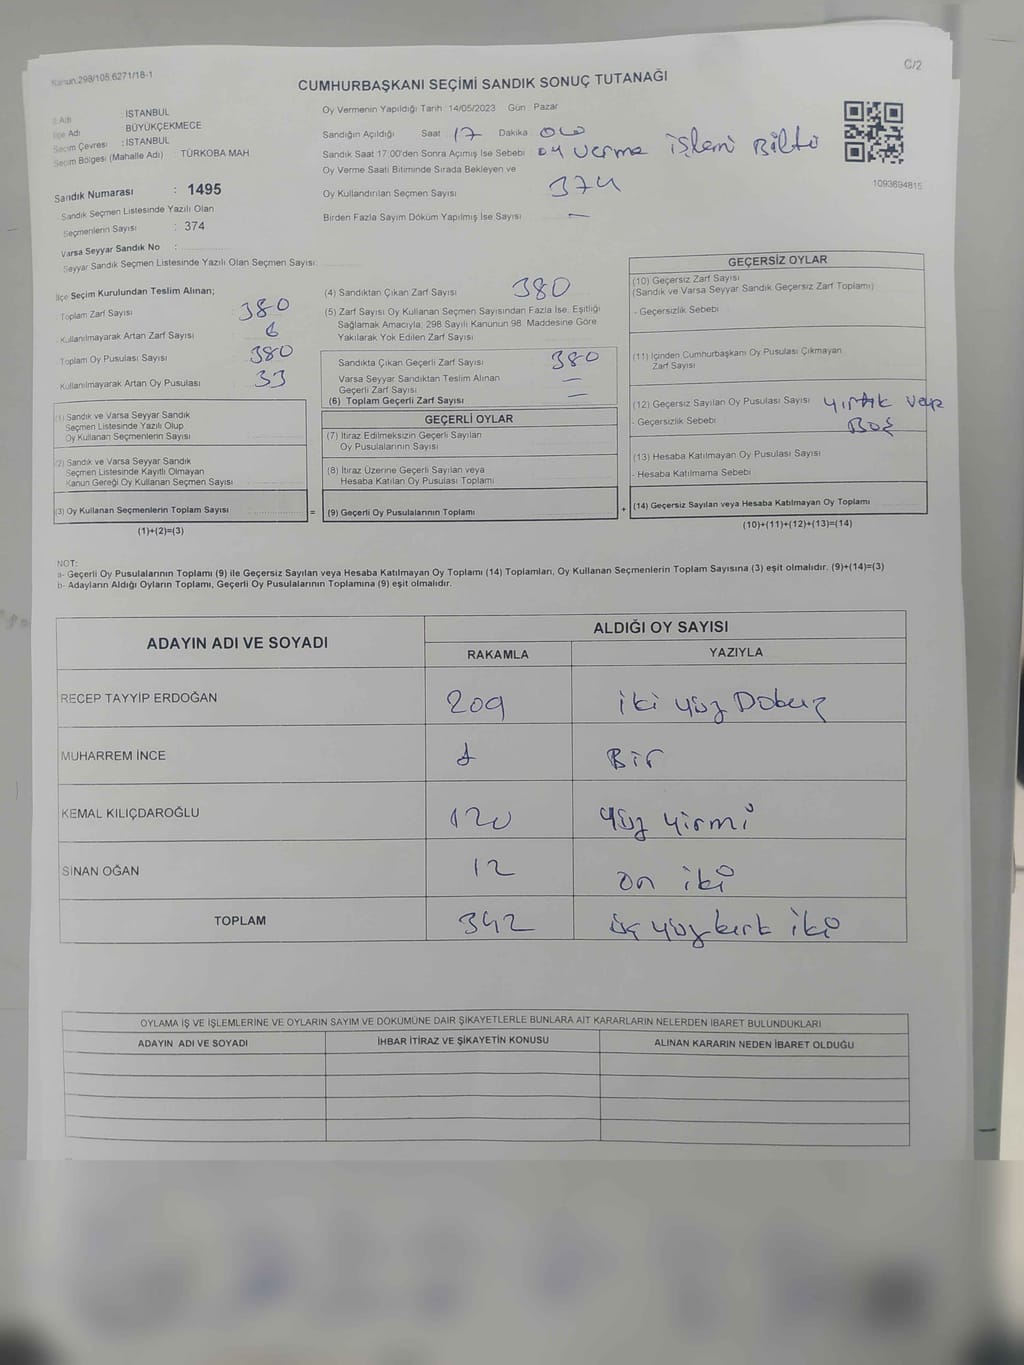 Kanun.298/105.6271/18-1
C/2
CUMHURBAŞKANI SEÇİMİ SANDIK SONUÇ TUTANAĞI
İl Adı : İSTANBUL
İlçe Adı BÜYÜKÇEKMECE
Seçim Çevresi : İSTANBUL
Seçim Bölgesi (Mahalle Adı) : TÜRKOBA MAH
Sandık Numarası : 1495
Sandık Seçmen Listesinde Yazılı Olan
Seçmenlerin Sayısı : 374
Varsa Seyyar Sandık No :
Seyyar Sandık Seçmen Listesinde Yazılı Olan Seçmen Sayısı:
Oy Vermenin Yapıldığı Tarih 14/05/2023 Gün : Pazar
Sandığın Açıldığı Saat 17 Dakika 00
Sandık Saat 17:00'den Sonra Açımış İse Sebebi oy verme işlemi Bitti
Oy Verme Saati Bitiminde Sırada Bekleyen ve
Oy Kullandırılan Seçmen Sayısı 374
Birden Fazla Sayım Döküm Yapılmış İse Sayısı —
1093694815
İlçe Seçim Kurulundan Teslim Alınan;
Toplam Zarf Sayısı 380
Kullanılmayarak Artan Zarf Sayısı 6
Toplam Oy Pusulası Sayısı 380
Kullanılmayarak Artan Oy Pusulası 33
(1) Sandık ve Varsa Seyyar Sandık
Seçmen Listesinde Yazılı Olup
Oy Kullanan Seçmenlerin Sayısı
(2) Sandık ve Varsa Seyyar Sandık
Seçmen Listesinde Kayıtlı Olmayan
Kanun Gereği Oy Kullanan Seçmen Sayısı
(3) Oy Kullanan Seçmenlerin Toplam Sayısı
(1)+(2)=(3)
=
(4) Sandıktan Çıkan Zarf Sayısı 380
(5) Zarf Sayısı Oy Kullanan Seçmen Sayısından Fazla İse; Eşitliği
Sağlamak Amacıyla, 298 Sayılı Kanunun 98. Maddesine Göre
Yakılarak Yok Edilen Zarf Sayısı
Sandıkta Çıkan Geçerli Zarf Sayısı 380
Varsa Seyyar Sandıktan Teslim Alınan
Geçerli Zarf Sayısı —
(6) Toplam Geçerli Zarf Sayısı —
GEÇERLİ OYLAR
(7) İtiraz Edilmeksizin Geçerli Sayılan
Oy Pusulalarının Sayısı
(8) İtiraz Üzerine Geçerli Sayılan veya
Hesaba Katılan Oy Pusulası Toplamı
(9) Geçerli Oy Pusulalarının Toplamı
+
GEÇERSİZ OYLAR
(10) Geçersiz Zarf Sayısı
(Sandık ve Varsa Seyyar Sandık Geçersiz Zarf Toplamı)
- Geçersizlik Sebebi
(11) İçinden Cumhurbaşkanı Oy Pusulası Çıkmayan
Zarf Sayısı
(12) Geçersiz Sayılan Oy Pusulası Sayısı yırtık veya
- Geçersizlik Sebebi Boş
(13) Hesaba Katılmayan Oy Pusulası Sayısı
- Hesaba Katılmama Sebebi
(14) Geçersiz Sayılan veya Hesaba Katılmayan Oy Toplamı
(10)+(11)+(12)+(13)=(14)
NOT:
a- Geçerli Oy Pusulalarının Toplamı (9) ile Geçersiz Sayılan veya Hesaba Katılmayan Oy Toplamı (14) Toplamları, Oy Kullanan Seçmenlerin Toplam Sayısına (3) eşit olmalıdır. (9)+(14)=(3)
b- Adayların Aldığı Oyların Toplamı, Geçerli Oy Pusulalarının Toplamına (9) eşit olmalıdır.
ADAYIN ADI VE SOYADI ALDIĞI OY SAYISI
RAKAMLA YAZIYLA
RECEP TAYYİP ERDOĞAN 209 iki yüz Dokuz
MUHARREM İNCE 1 Bir
KEMAL KILIÇDAROĞLU 120 yüz yirmi
SİNAN OĞAN 12 on iki
TOPLAM 342 üç yüz kırk iki
OYLAMA İŞ VE İŞLEMLERİNE VE OYLARIN SAYIM VE DÖKÜMÜNE DAİR ŞİKAYETLERLE BUNLARA AİT KARARLARIN NELERDEN İBARET BULUNDUKLARI
ADAYIN ADI VE SOYADI İHBAR İTİRAZ VE ŞİKAYETİN KONUSU ALINAN KARARIN NEDEN İBARET OLDUĞU